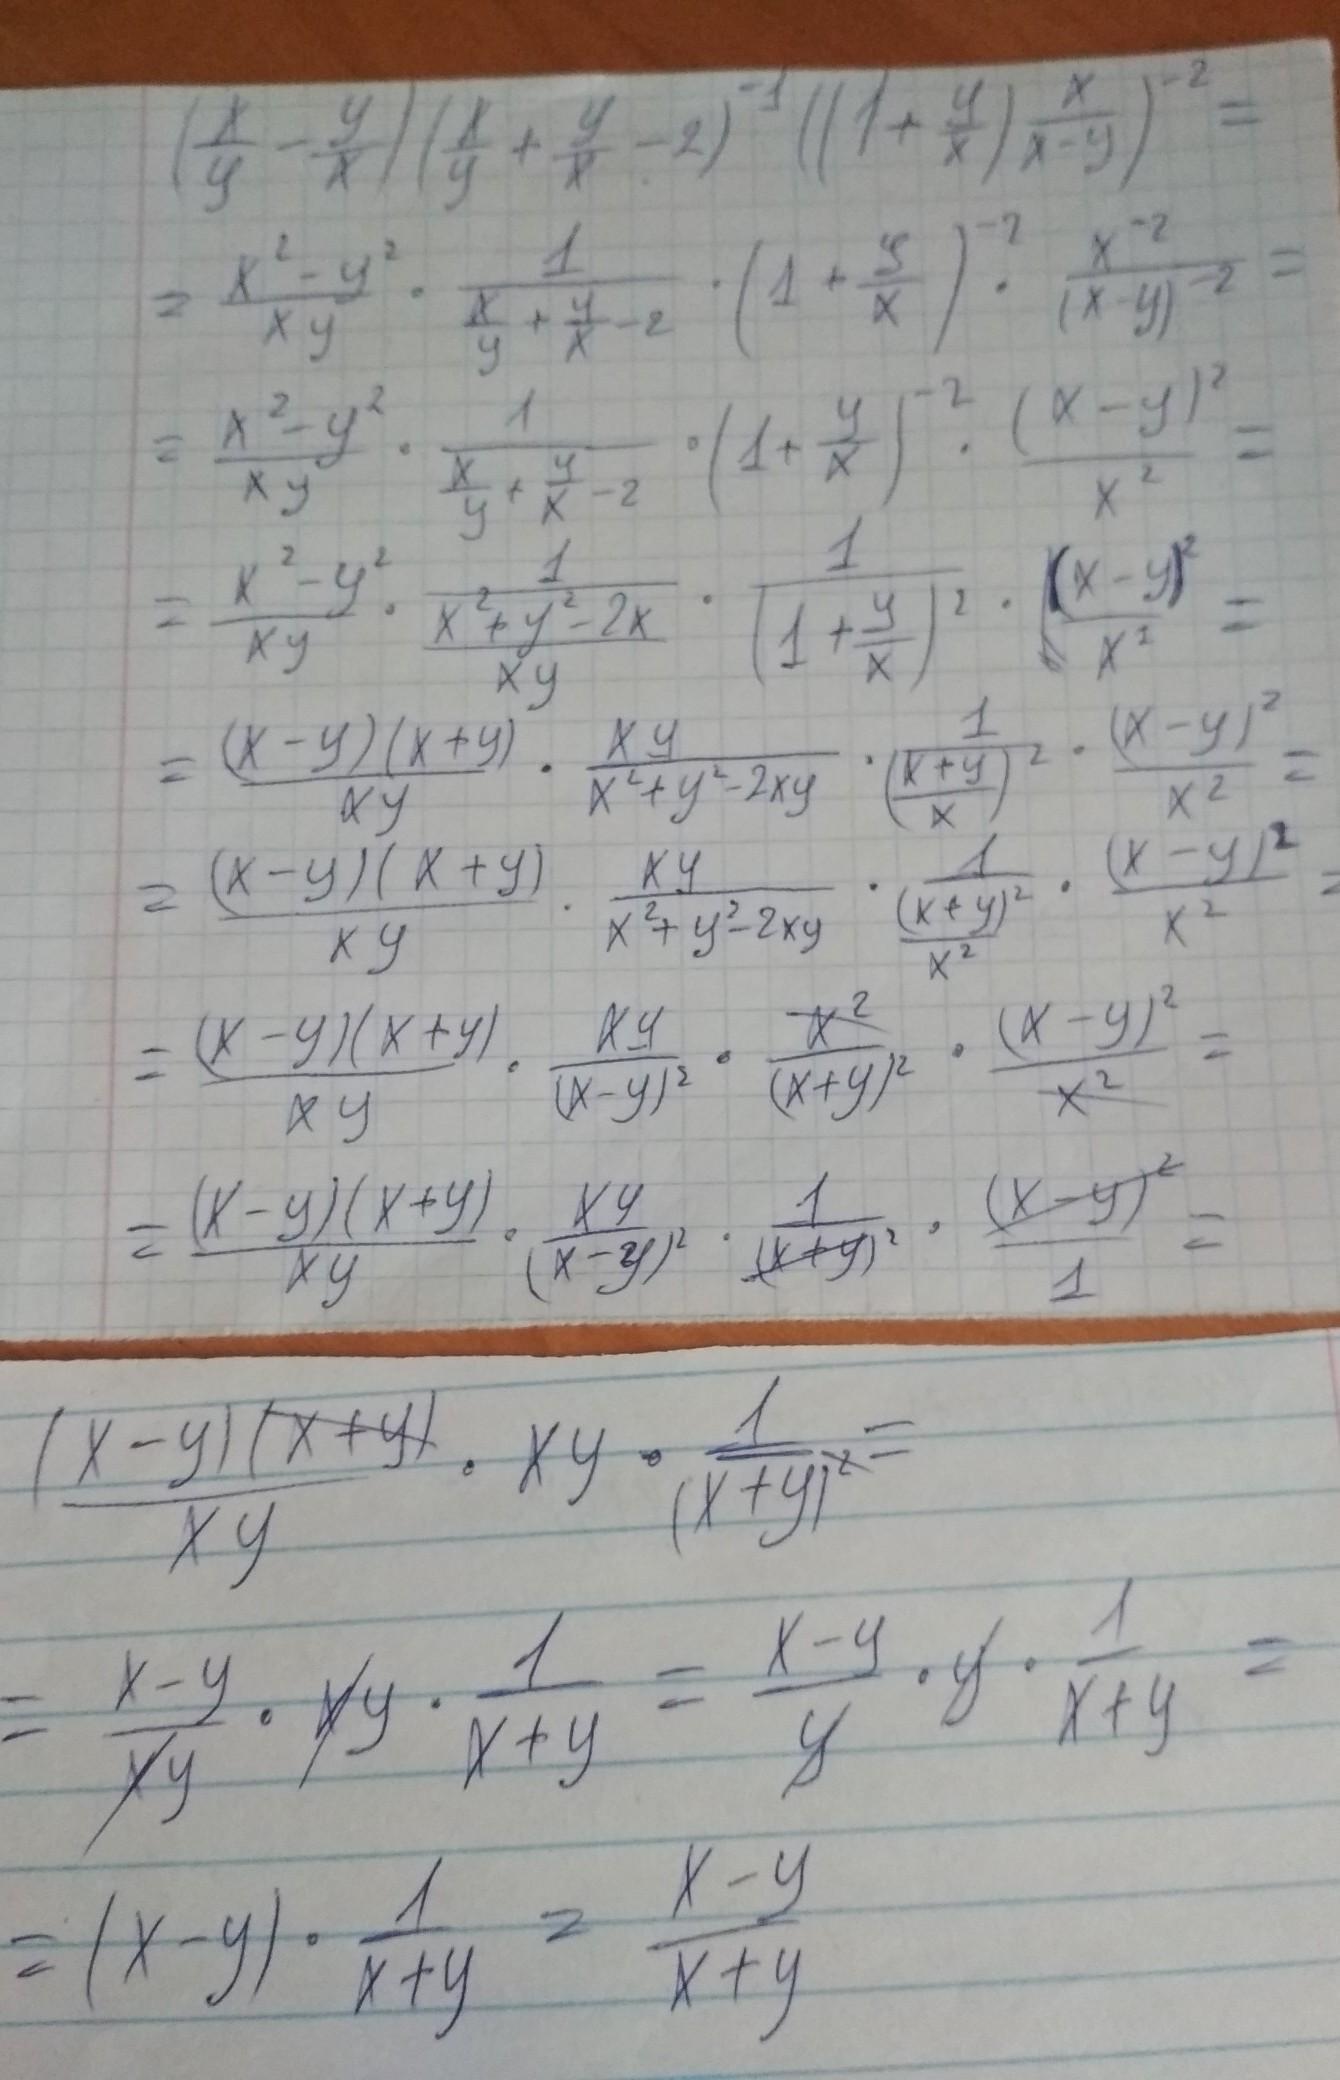 (x/y - y/x)(x/y + y/x - 2)^-1 ((1 + y/x) x/(x-y))^-2 =
= (x^2 - y^2)/(xy) · 1/(x/y + y/x - 2) · (1 + y/x)^-2 · x^-2/(x-y)^-2 =
= (x^2 - y^2)/(xy) · 1/(x/y + y/x - 2) · (1 + y/x)^-2 · (x - y)^2/x^2 =
= (x^2 - y^2)/(xy) · 1/((x^2 + y^2 - 2x)/(xy)) · 1/(1 + y/x)^2 · (x - y)^2/x^2 =
= (x - y)(x + y)/(xy) · xy/(x^2 + y^2 - 2xy) · 1/((x + y)/x)^2 · (x - y)^2/x^2 =
= (x - y)(x + y)/(xy) · xy/(x^2 + y^2 - 2xy) · 1/((x + y)^2/x^2) · (x - y)^2/x^2 =
= (x - y)(x + y)/(xy) · xy/(x - y)^2 · x^2/(x + y)^2 · (x - y)^2/x^2 =
= (x - y)(x + y)/(xy) · xy/(x - y)^2 · 1/(x + y)^2 · (x - y)^2/1 =
(x - y)(x + y)/(xy) · xy · 1/(x + y)^2 =
= (x - y)/(xy) · xy · 1/(x + y) = (x - y)/y · y · 1/(x + y) =
= (x - y) · 1/(x + y) = (x - y)/(x + y)